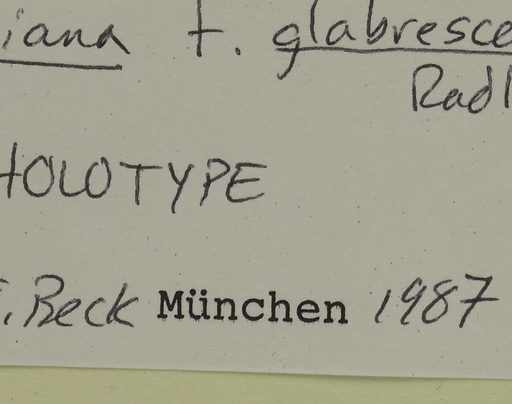 iana f. glabresce
Radl
HOLOTYPE
. Beck München 1987